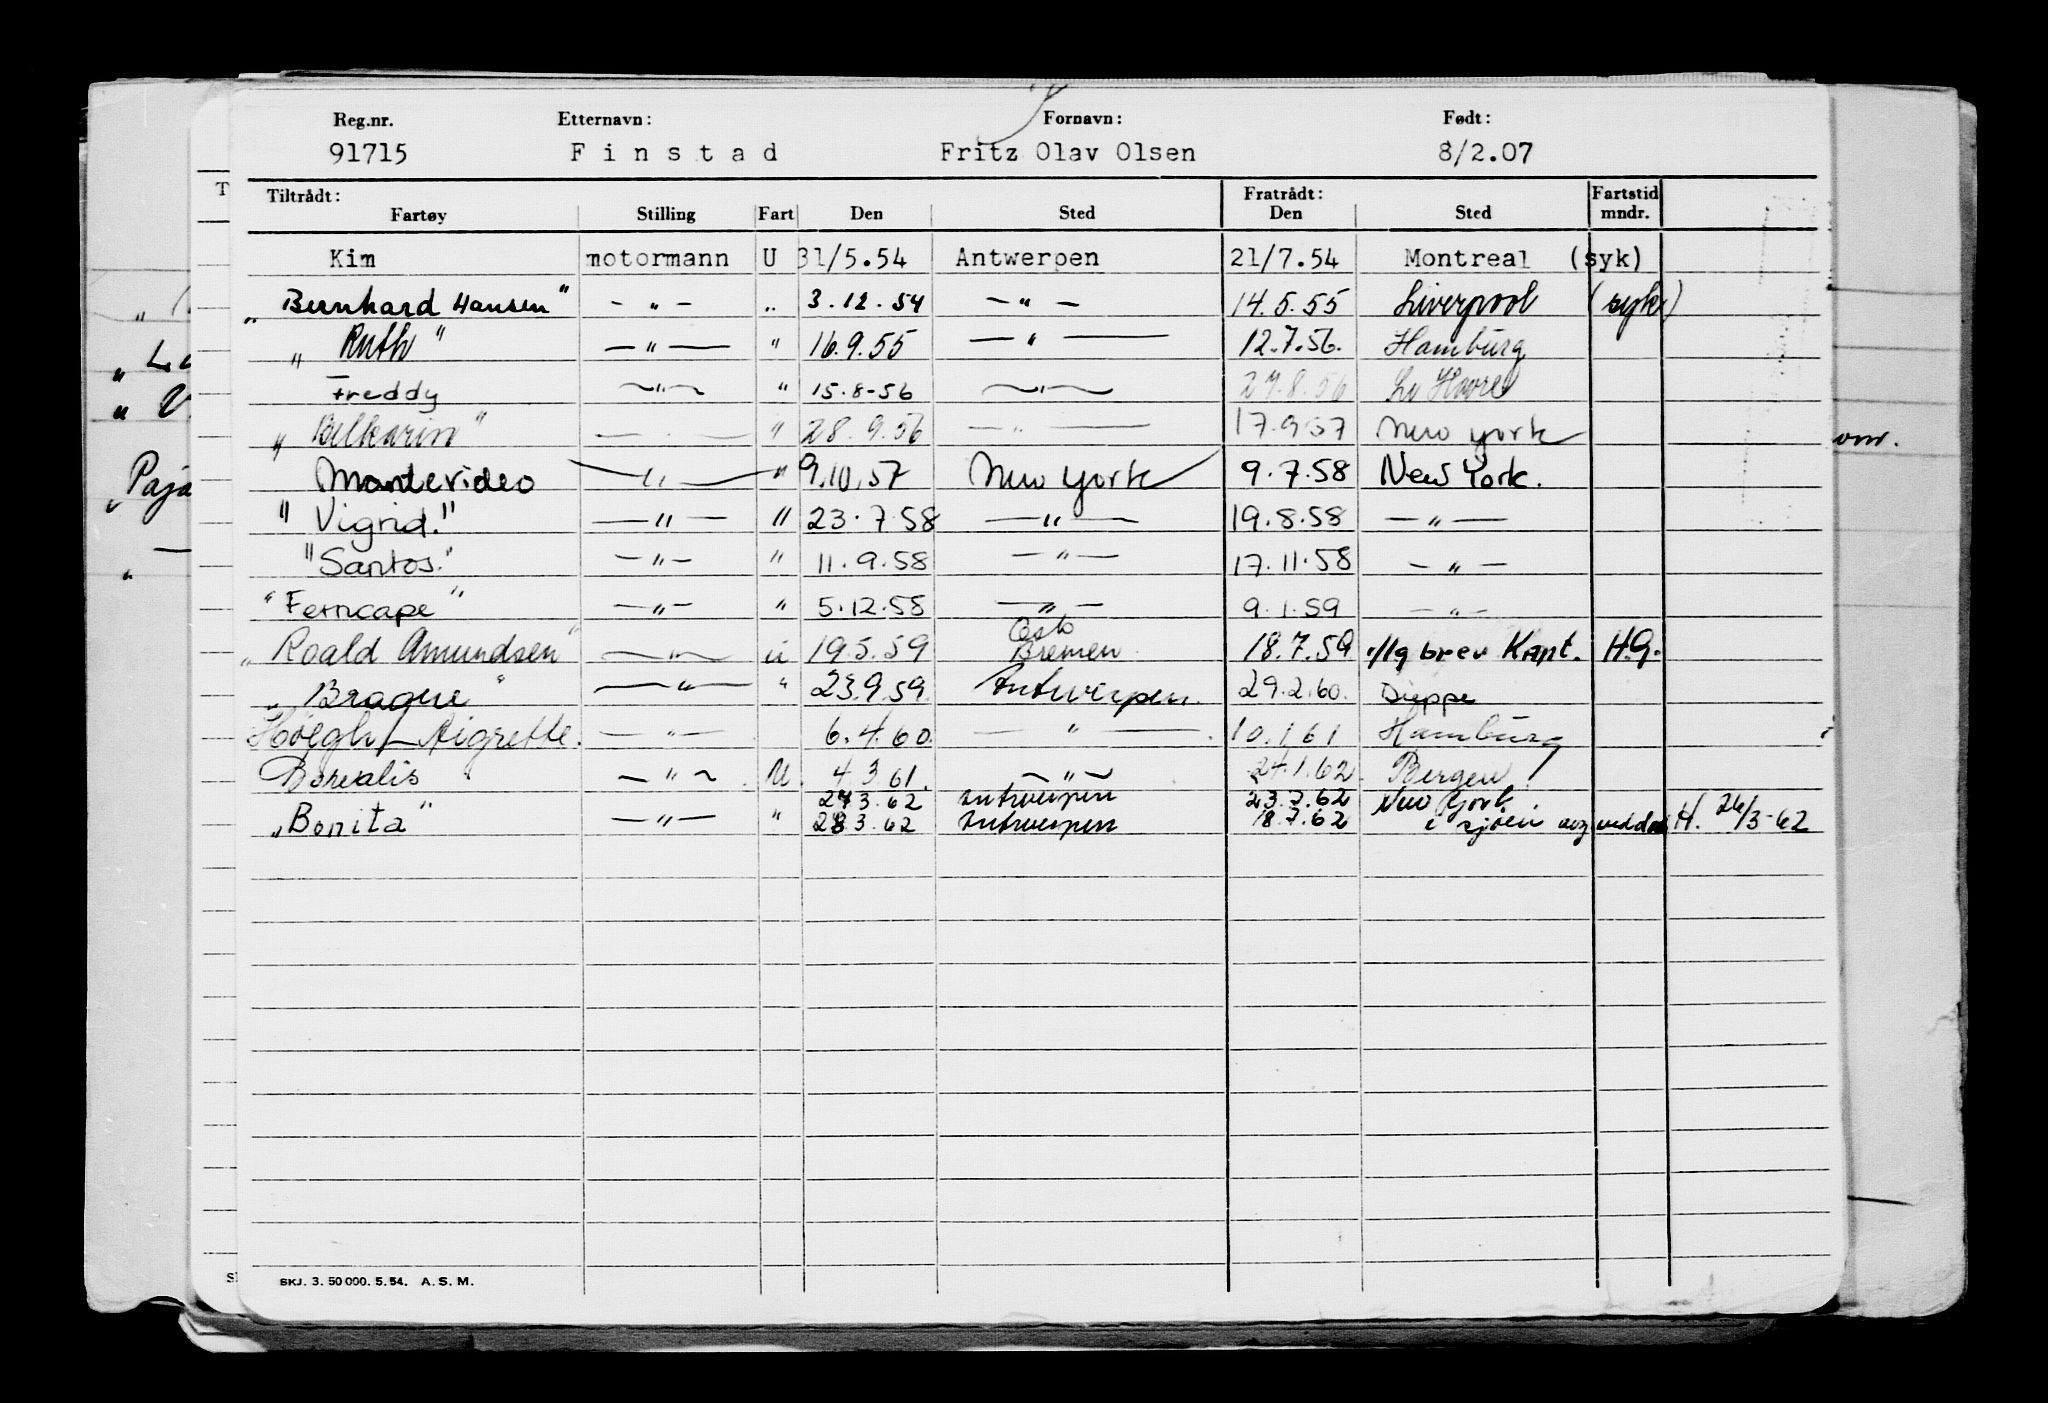 Reg.nr. Etternavn: Fornavn: Født:
91715 Finstad Fritz Olav Olsen 8/2.07
Tiltrådt: Fratrådt: Fartstid
Fartøy Stilling Fart Den Sted Den Sted mndr.
Kim motormann U 31/5.54 Antwerpen 21/7.54 Montreal (syk)
„Bernhard Hansen" — " — " 3.12.54 — " — 14.5.55 Liverpool (syk)
„Ruth" — " — " 16.9.55 — " — 12.7.56. Hamburg
Freddy — " — " 15.8-56 — " — 27.8.56 Le Havre
„Belkarin" — " — " 28.9.56 — " — 17.9.57 New York
Montevideo — " — " 9.10.57 New York 9.7.58 New York.
"Vigrid." — " — " 23.7.58 — " — 19.8.58 — " —
"Santos." — " — " 11.9.58 — " — 17.11.58 — " —
"Ferncape" — " — " 5.12.58 — " — 9.1.59 — " —
Oslo
„Roald Amundsen" — " — u 19.5.59 Bremen 18.7.59 iflg brev Kapt. H.G.
„Brague" — " — " 23.9.59. Antwerpen. 29.2.60. Dieppe
Höegh Aigrette. — " — 6.4.60. — " — 10.1.61 Hamburg
Borealis — " — U. 4.3.61. — " — 24.1.62. Bergen
3.62 Antwerpen 23.7.62 New York
„Bonita" — " — " 28.3.62 Antwerpen 18.7.62 i sjøen H. 26/3-62
SKJ. 3. 50 000. 5. 54. A. S. M.
„Paja
om.